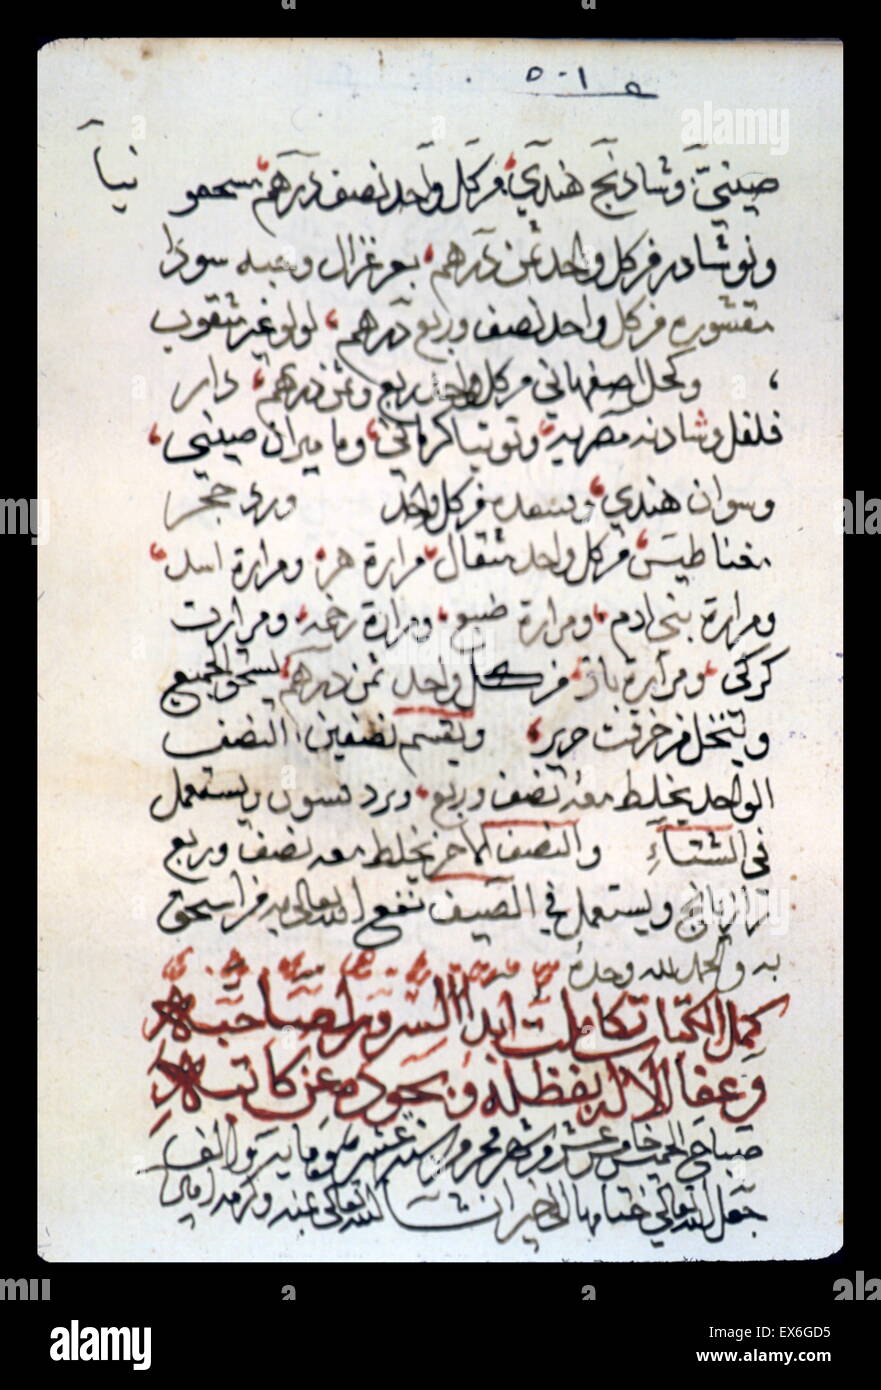 صيني، وشادنج هندي، من كل واحد نصف درهم،
ونوشادر من كل واحد ثمن درهم، بعر غزال وحبه سودا
مقشوره من كل واحد نصف وربع درهم، لولو غير مثقوب
، وكحل اصفهاني من كل واحد ربع وثمن درهم، دار
فلفل وشادنه مصريه، وتوتيا كرماني، وماميران صيني،
هندي، من كل واحد حجر
مغناطيس، من كل واحد مثقال، مرارة هر، ومرارة اسد،
ومرارة بني ادم، ومرارة ومرارة رخمه، ومرارت
كركي، ومرارة باز، من كل واحد ثمن درهم، يسحق الجميع
وينخل من خرقت حرير، ويقسم نصفين، النصف
الواحد يخلط معه نصف وربع، ويستعمل
في الشتاء والنصف الاخر يخلط معه نصف وربع
ويستعمل في الصيف نفع الله تعالى به
به والحمد لله وحده
كمل الكتاب تكاملت ابدا السرور لصاحبه
وعفا الاله بفضله وبجوده عن كاتبه
صباح الخميس خامس عشر شهر محرم
جعل الله تعالى الى خير ان شا الله تعالى
a alamy
alamy stock photo
EX6GD5
www.alamy.com